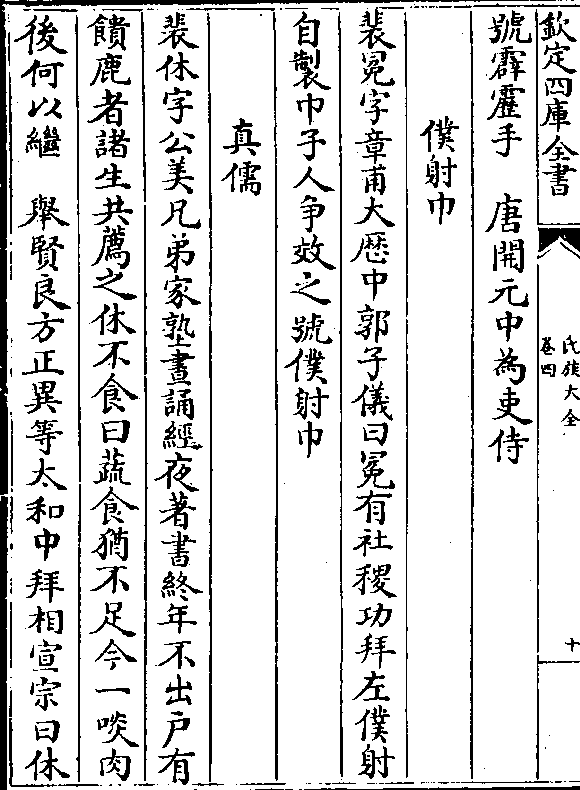 欽定四庫全書
氏族大全
卷四
十
號霹靂手　唐開元中為吏侍
僕射巾
裴冕字章甫大歴中郭子儀曰冕有社稷功拜左僕射
自製巾子人争效之號僕射巾
真儒
裴休字公美兄弟家塾晝誦經夜著書終年不出戶有
饋鹿者諸生共薦之休不食曰蔬食猶不足今一啖肉
後何以繼　舉賢良方正異等太和中拜相宣宗曰休